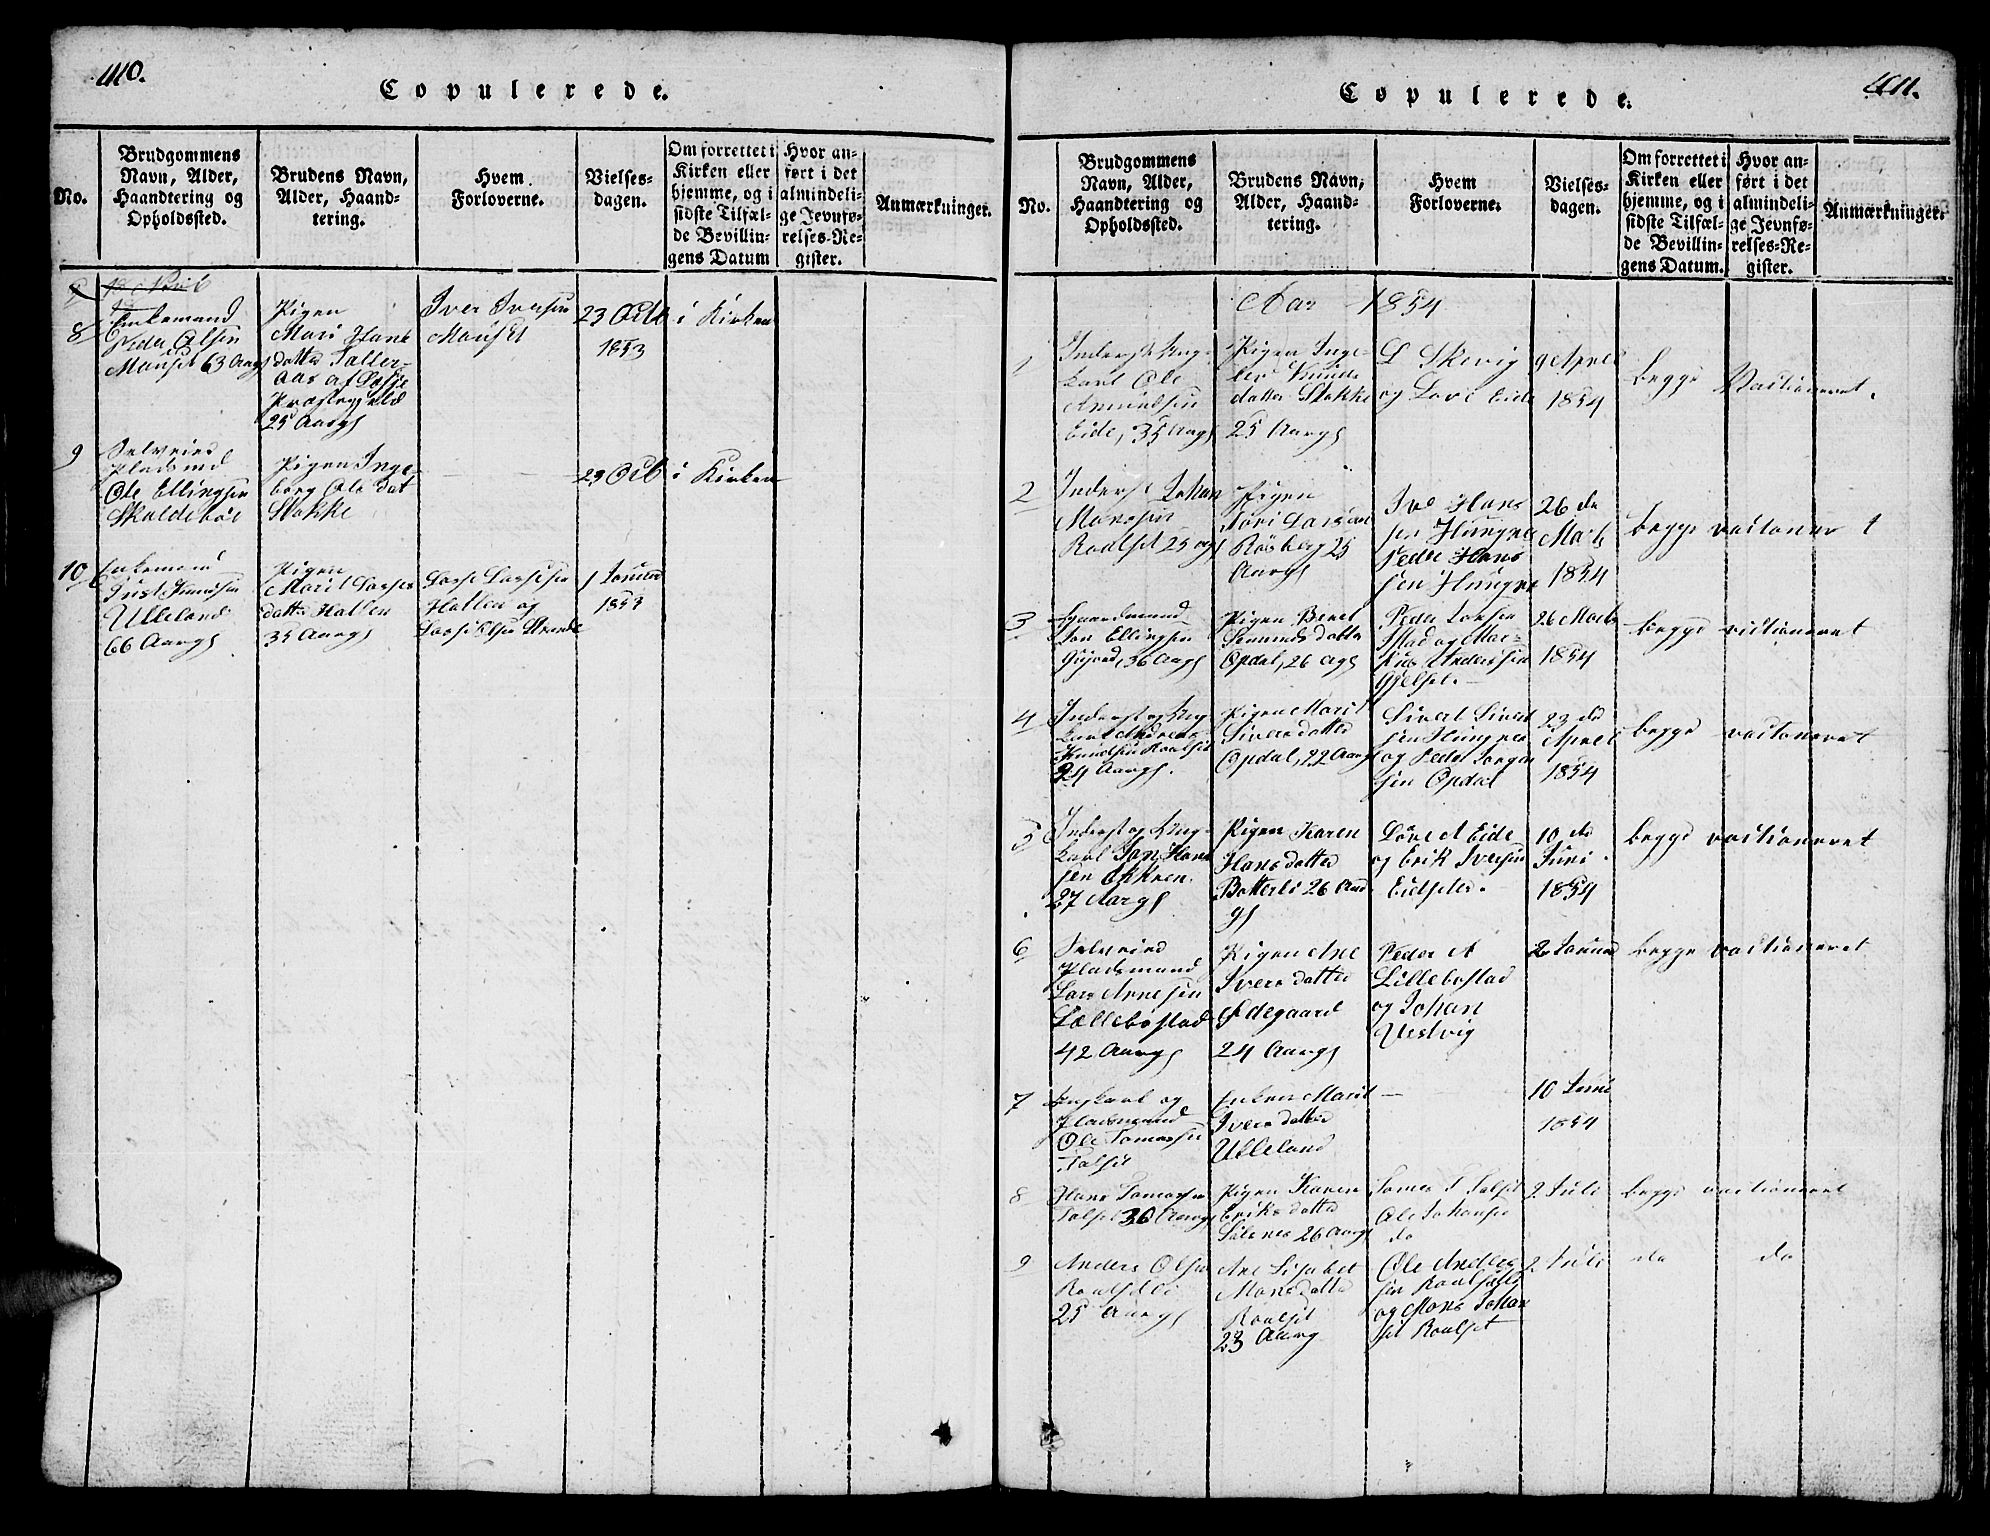 410.
Copulerede.
No.
Brudgommens
Navn, Alder,
Haandtering og
Opholdssted.
Brudens Navn,
Alder, Haand-
tering.
Hvem
Forloverne.
Vielses-
dagen.
Om forrettet i
Kirken eller
hjemme, og i
sidste Tilfæl-
de Bevillin-
gens Datum
Hvor an-
ført i det
almindeli-
ge Jevnfø-
relses-Re-
gister.
Anmærkninger.
8
Enkemand
Peder Olsen
Mauset 63 Aargs
Pigen
Mari Hans
datter
Aas af
Præstegjeld
25 Aargs
Iver Iversen
Mauset
23 Octb
1853
i Kirken
9
Selveier
Pladsmd
Ole Ellingsen
Skuldebøl
Pigen Inge-
borg Ols dat
Stokke
23 Octb
i Kirken
10
Enkemand
Just Knudsen
Ulleland
66 Aargs
Pigen
Marit Lasses
datter Hallen
35 Aargs
Lasse Lassesen
Hallen og
Lasse Olsen Strande
1 Januar
1853
411.
Copulerede.
No.
Brudgommens
Navn, Alder,
Haandtering og
Opholdssted.
Brudens Navn,
Alder, Haand-
tering.
Hvem
Forloverne.
Vielses-
dagen.
Om forrettet i
Kirken eller
hjemme, og i
sidste Tilfæl-
de Bevillin-
gens Datum.
Hvor an-
ført i det
almindeli-
ge Jevnfø-
relses-Re-
gister.
Anmærkninger.
Aar 1854
1
Inderst Ung-
karl Ole
Amundsen
Eide, 35 Aargs
Pigen Inge-
lev Knuds
datter Stokke
25 Aargs
L Skevig
og Love Eide
9 April
1854
begge Vactioneret.
2
Inderst Johan
Monssen
Roalset 25 Ags
Pigen
Røsberg 25
Aargs
Ive Hans
sen Hungnes
Peder Hans
sen Hungnes
26 de
Marts
1854
begge vactioneret
3
Gaardmand
Jon Ellingsen
36 Aargs
Pigen Beret
datter
Opdal, 26 Ags
Peder
Stad og Mar-
kus Anderssen
Gjelset.
26 Marts
1854
begge vactioneret
4
Inderst og Ung
karl Andreas
Knudsen Roalset
24 Aargs.
Pigen Marit
Sivers datter
Opdal, 22 Aargs
Sivert Sivert
sen Hungnes
og Peder Jorgen
sen Opdal
23 de
April
1854
begge vactoneret
5
Inderst og Ung-
karl Jon Hans
sen Ekkren.
27 Aargs
Pigen Karen
Hans datter
Botterli 26 Aar
gs
Løve A Eide
og Erik Iversen
Eidseter.
10 de
Juni
1854
begge vactioneret
6
Selveier
Pladsmand
Lars Arnesen
Lillebostad
42 Aargs
Pigen Ane
Ivers datter
Ødegaard
24 Aargs
Peder A
Lillebostad
og Johan
Vestvig
2 Januar
begge vactioneret
7
Ungkarl og
Pladsmand
Ole Tomassen
Talset
Enken Marit
Ivers datter
Ulleland
10 Juni
1854
8
Hans Tomassen
Talset 30 Aargs
Pigen Karen
Eriks datter
Sølsnes 26 Aargs
Tomas T Talset
Ole Johansen
do
2 Juli
begge vactioneret
9
Anders Olsen
Roalsetli
25 Aargs
Ane Lisabet
Mons datter
Roalset
23 Aarg
Ole Anders
sen Roalsetli
og Mons Johan
sen Roalset
2 Juli
do
do